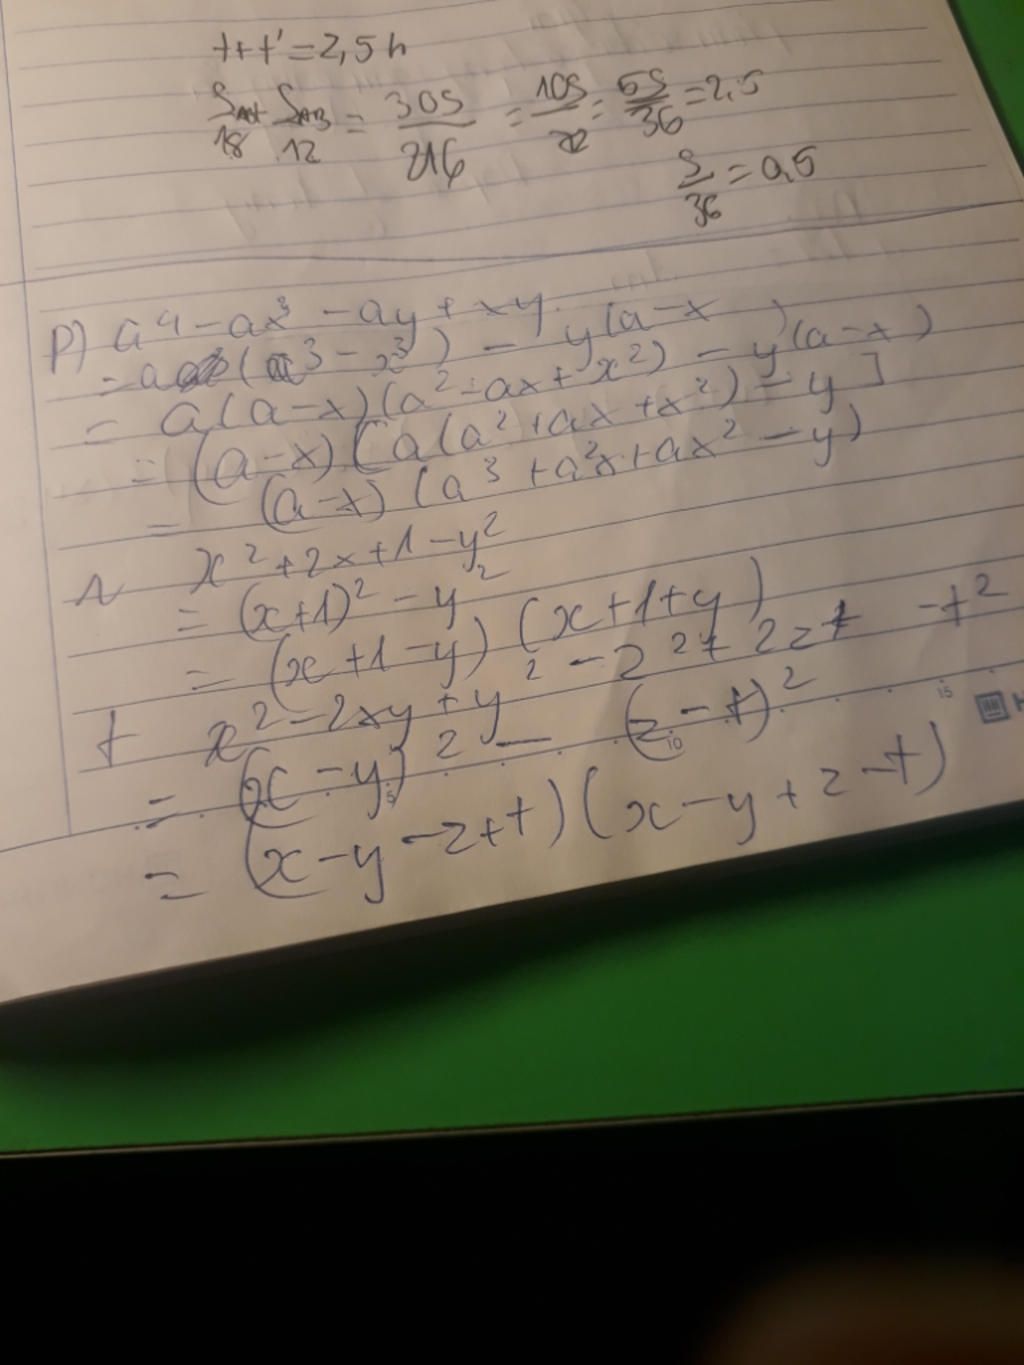 t+t' = 2,5 h
S_AB/18 + S_AB/12 = 30S/216 = 10S/72 = 5S/36 = 2,5
S/36 = 0,5
p) a⁴ - ax³ - ay + xy
= a(a³ - x³) - y(a-x)
= a(a-x)(a²+ax+x²) - y(a-x)
= (a-x)[a(a²+ax+x²) - y]
= (a-x)(a³+a²x+ax²-y)
r x²+2x+1-y²
= (x+1)² - y²
= (x+1-y)(x+1+y)
t x²-2xy+y²-z²+2zt-t²
= (x-y)² - (z-t)²
= (x-y-z+t)(x-y+z-t)
5 10 15